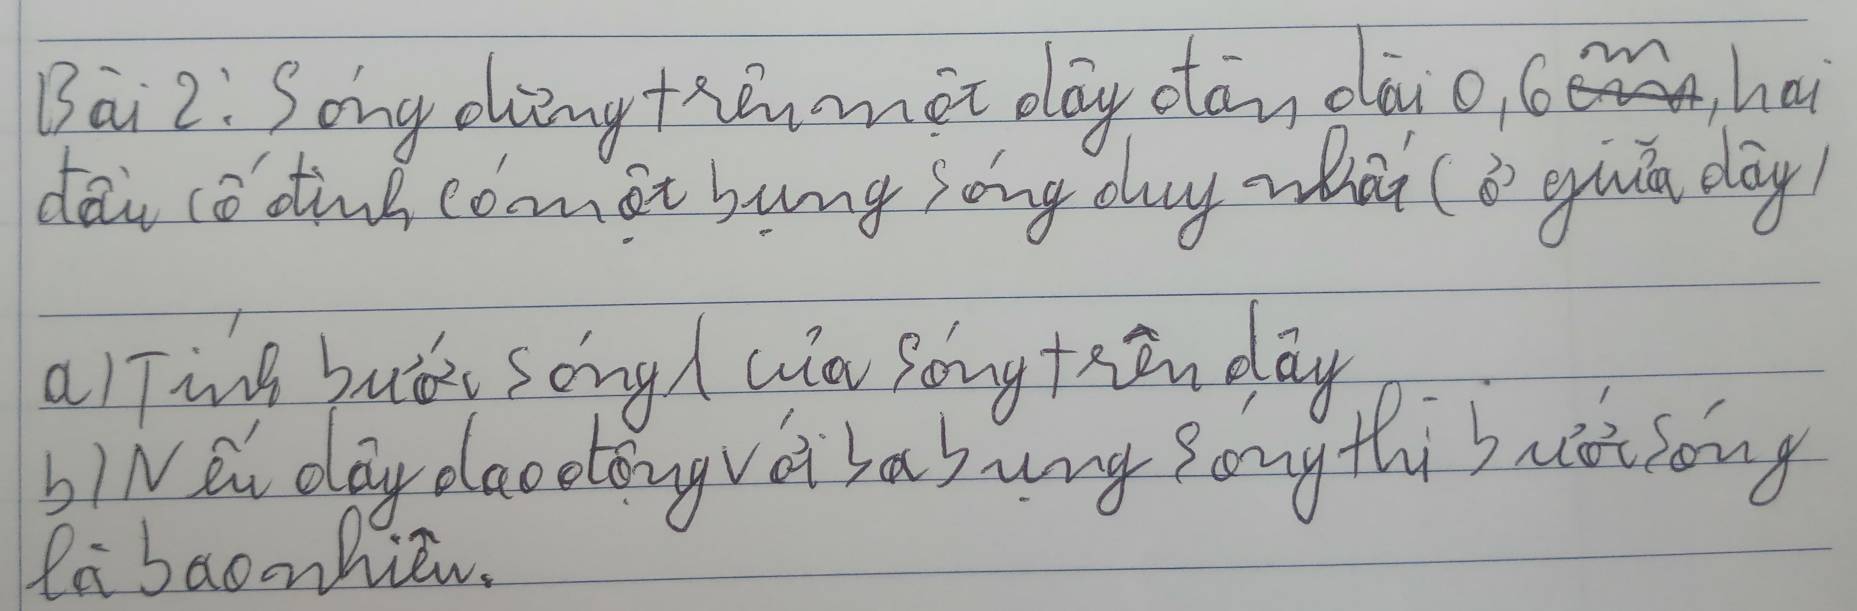 Bài 2: Sóng dừng trên một dây đàn dài 0,6 m, hai
đầu cố định có một bụng sóng duy nhất (ở giữa dây)
a) Tính bước sóng λ của sóng trên dây
b) Nếu dây dao động với ba bụng sóng thì bước sóng
là bao nhiêu.